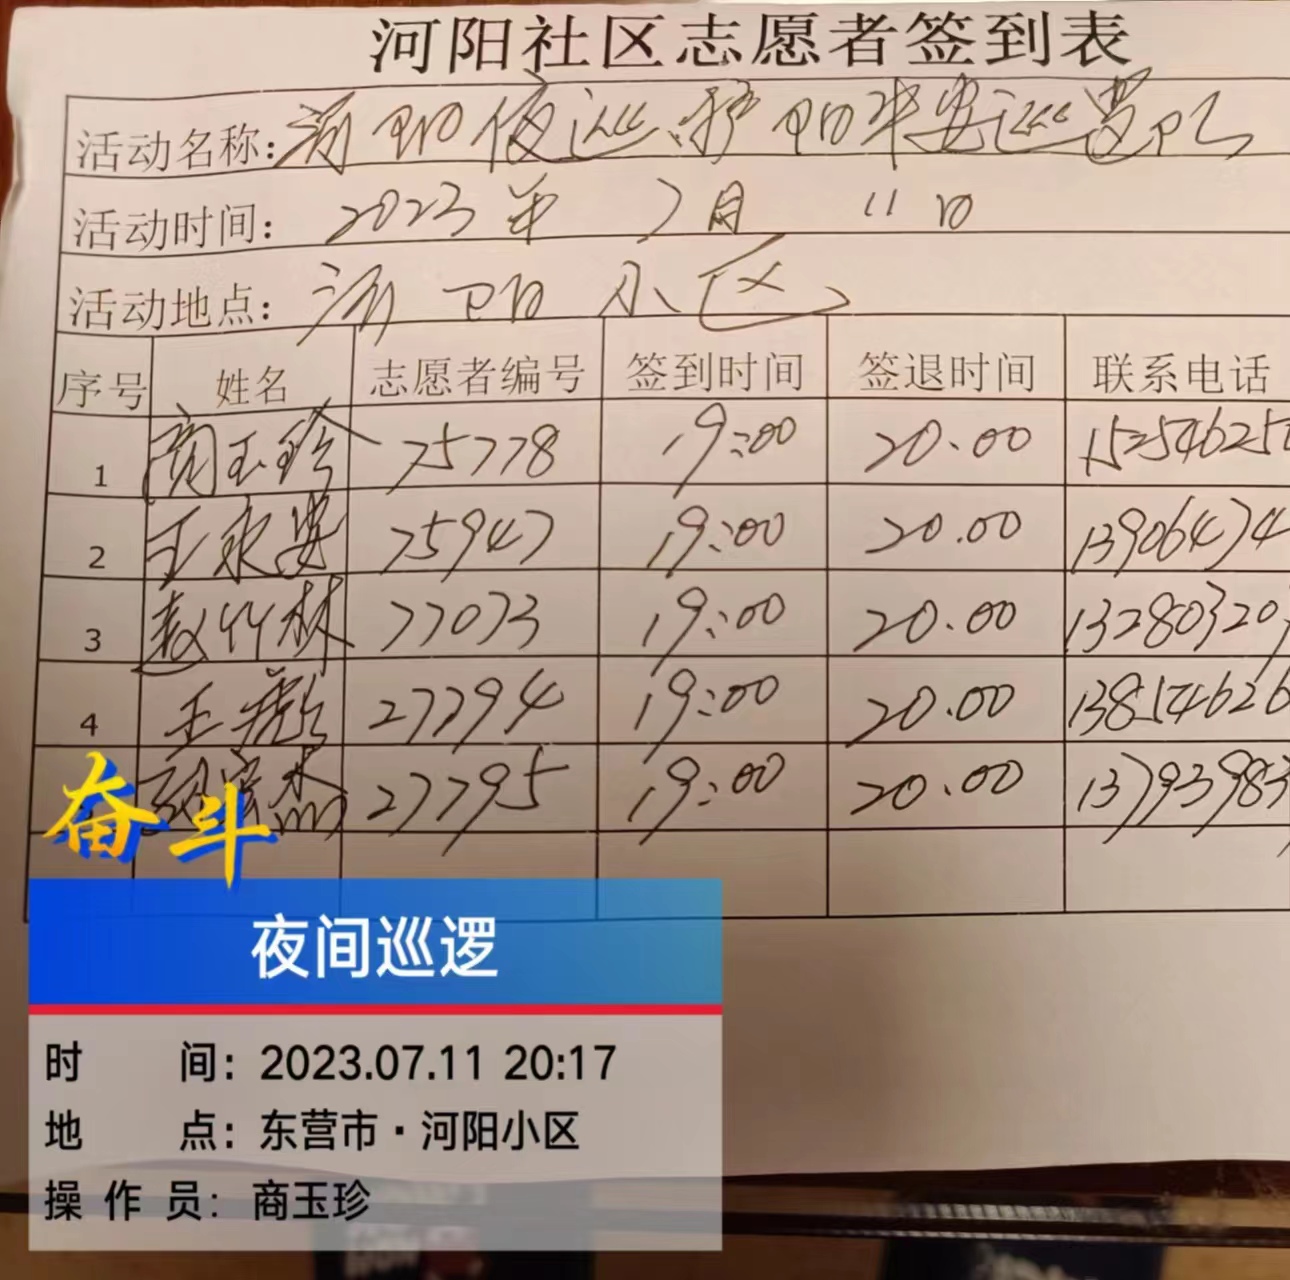 河阳社区志愿者签到表
活动名称:河阳夜巡.护阳平安巡逻队
活动时间: 2023年 7月 11日
活动地点: 河阳小区
序号 姓名 志愿者编号 签到时间 签退时间 联系电话
1 商玉珍 75778 19:00 20.00 152546250
2 王永安 75947 19:00 20.00 13906474
3 赵竹林 77073 19:00 20.00 132803207
4 王 27794 19:00 20.00 13854626
27795 19:00 20.00 13793983
奋斗
夜间巡逻
时 间: 2023.07.11 20:17
地 点: 东营市·河阳小区
操 作 员: 商玉珍